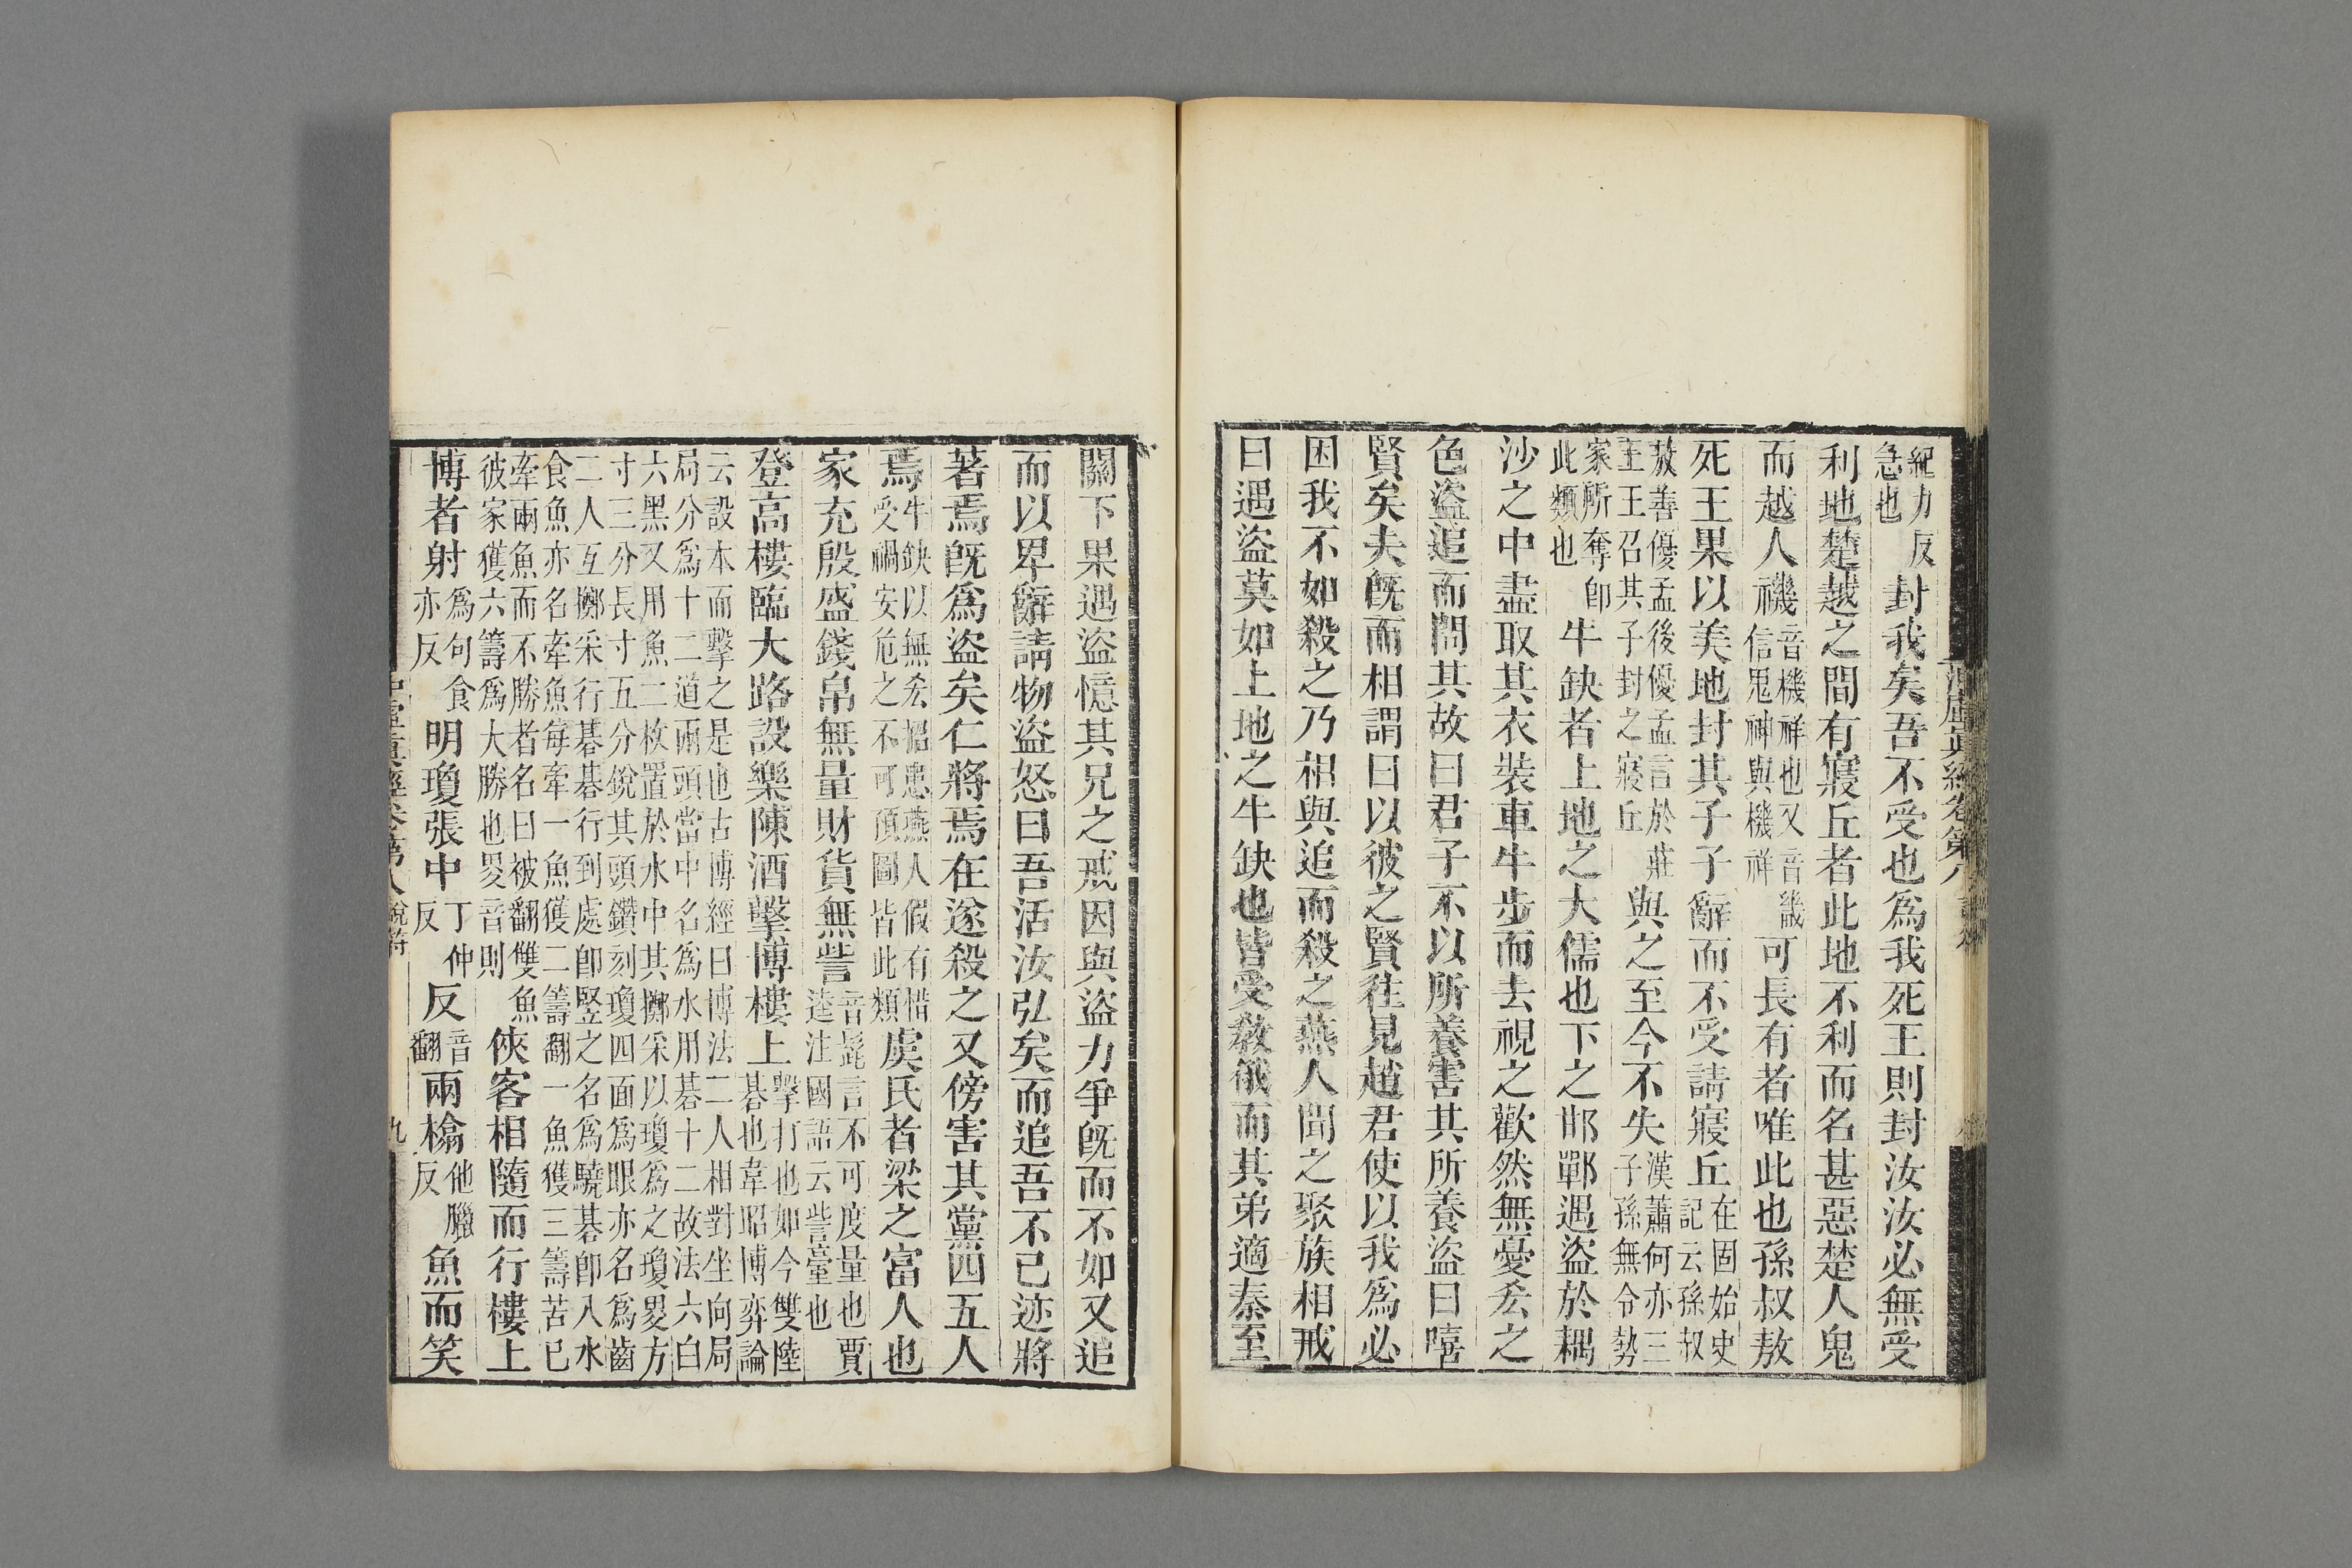 紀力反
急也
封我矣吾不受也爲我死王則封汝汝必無受
利地楚越之間有寢丘者此地不利而名甚惡楚人鬼
而越人禨
音機祥也又音畿
信鬼神與機祥
可長有者唯此也孫叔敖
死王果以美地封其子子辭而不受請寢丘
在固始史
記云孫叔
敖善優孟後優孟言於莊
王王召其子封之寢丘
與之至今不失
漢蕭何亦三
子孫無令勢
家所奪卽
此類也
牛缺者上地之大儒也下之邯鄲遇盜於耦
沙之中盡取其衣裝車牛步而去視之歡然無憂𠫤之
色盜追而問其故曰君子不以所養害其所養盜曰嘻
賢矣夫旣而相謂曰以彼之賢往見趙君使以我爲必
困我不如殺之乃相與追而殺之燕人聞之聚族相戒
曰遇盜莫如上地之牛缺也皆受敎俄而其弟適秦至
關下果遇盜憶其兄之戒因與盜力爭旣而不如又追
而以卑辭請物盜怒曰吾活汝弘矣而追吾不已迹將
著焉旣爲盜矣仁將焉在遂殺之又傍害其黨四五人
焉
牛缺以無𠫤招患燕人假有惜
受禍安危之不可預圖皆此類
虞氏者梁之富人也
家充殷盛錢帛無量財貨無訾
音髭言不可度量也賈
逵注國語云訾量也
登高樓臨大路設樂陳酒擊博樓上
擊打也如今雙陸
碁也韋昭博弈論
云設木而擊之是也古博經曰博法二人相對坐向局
局分爲十二道兩頭當中名爲水用碁十二故法六白
六黑又用魚二枚置於水中其擲采以瓊爲之瓊畟方
寸三分長寸五分銳其頭鑽刻瓊四面爲眼亦名爲齒
二人互擲采行碁碁行到處卽竪之名爲驍碁卽入水
食魚亦名牽魚每牽一魚獲二籌翻一魚獲三籌若已
牽兩魚而不勝者名曰被翻雙魚
彼家獲六籌爲大勝也畟音則
俠客相隨而行樓上
博者射
爲句食
亦反
明瓊張中
丁仲
反
反
音
翻
兩㯓
他臘
反
魚而笑
沖虛眞經卷第八 說符
九